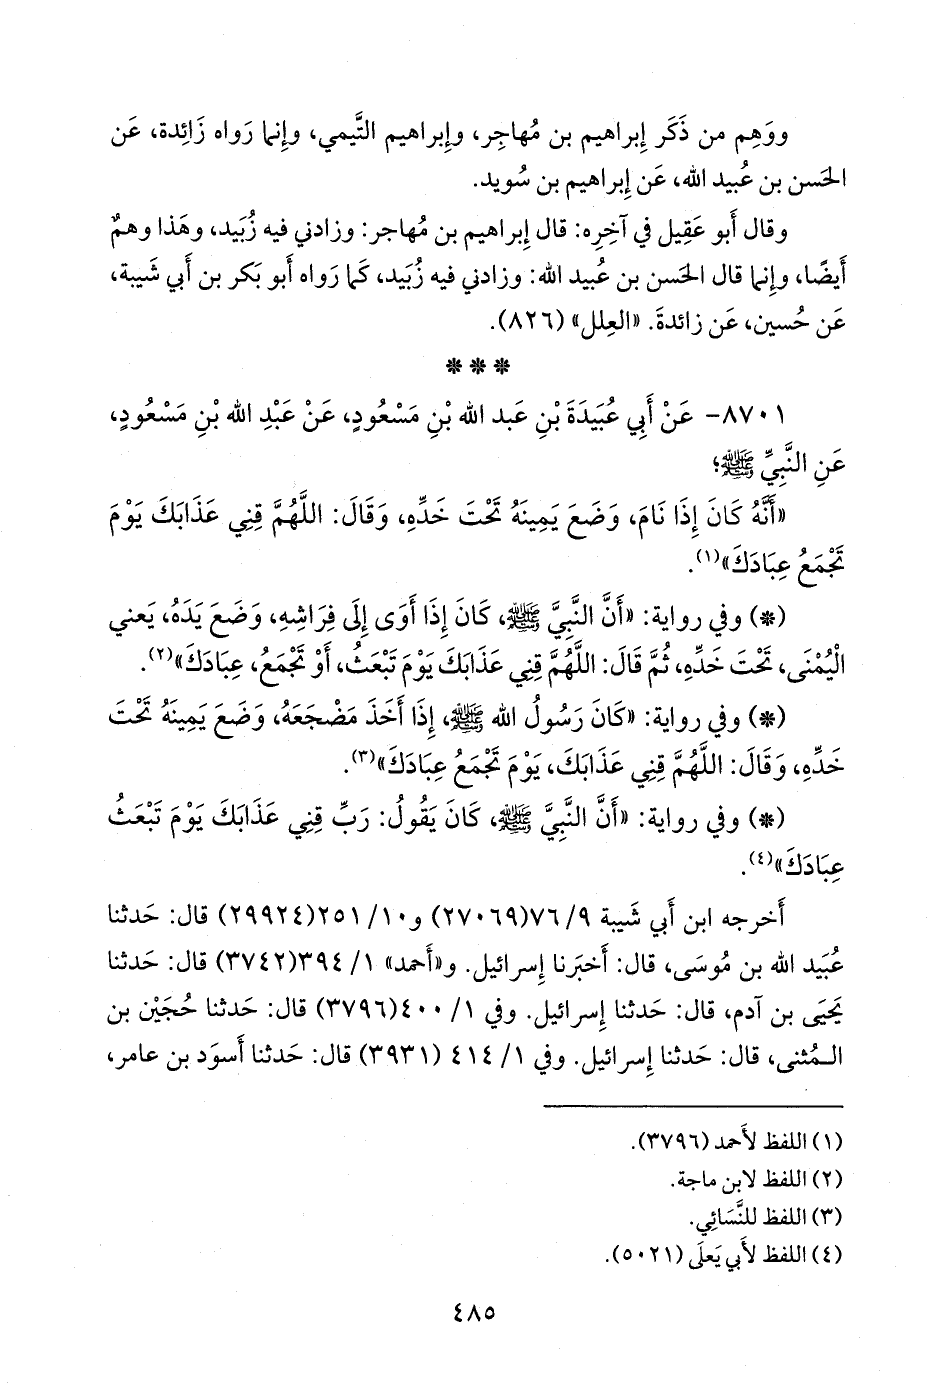 ووَهِم من ذَكَر إِبراهيم بن مُهاجِر، وإِبراهيم التَّيمي، وإِنما رَواه زَائِدة، عَن
الحَسن بن عُبيد الله، عَن إِبراهيم بن سُويد.
وقال أَبو عَقِيل في آخِرِه: قال إِبراهيم بن مُهاجر: وزادني فيه زُبَيد، وهَذا وهمٌ
أَيضًا، وإِنما قال الحَسن بن عُبيد الله: وزادني فيه زُبَيد، كَما رَواه أَبو بَكر بن أَبي شَيبة،
عَن حُسين، عَن زائدةَ. «العِلل» (٨٢٦).
* * *
٨٧٠١- عَنْ أَبِي عُبَيَدَةَ بْنِ عَبد الله بْنِ مَسْعُودٍ، عَنْ عَبْدِ الله بْنِ مَسْعُودٍ،
عَنِ النَّبِيِّ ﷺ؛
«أَنَّهُ كَانَ إِذَا نَامَ، وَضَعَ يَمِينَهُ تَحْتَ خَدِّهِ، وَقَالَ: اللَّهُمَّ قِنِي عَذَابَكَ يَوْمَ
تَجْمَعُ عِبَادَكَ»(١).
(*) وفي رواية: «أَنَّ النَّبِيَّ ﷺ، كَانَ إِذَا أَوَى إِلَى فِرَاشِهِ، وَضَعَ يَدَهُ، يَعني
الْيُمْنَى، تَحْتَ خَدِّهِ، ثُمَّ قَالَ: اللَّهُمَّ قِنِي عَذَابَكَ يَوْمَ تَبْعَثُ، أَوْ تَجْمَعُ، عِبَادَكَ»(٢).
(*) وفي رواية: «كَانَ رَسُولُ الله ﷺ، إِذَا أَخَذَ مَضْجَعَهُ، وَضَعَ يَمِينَهُ تَحْتَ
خَدِّهِ، وَقَالَ: اللَّهُمَّ قِنِي عَذَابَكَ، يَوْمَ تَجْمَعُ عِبَادَكَ»(٣).
(*) وفي رواية: «أَنَّ النَّبِيَّ ﷺ، كَانَ يَقُولُ: رَبِّ قِنِي عَذَابَكَ يَوْمَ تَبْعَثُ
عِبَادَكَ»(٤).
أَخرجه ابن أَبي شَيبة ٩/ ٧٦(٢٧٠٦٩) و١٠/ ٢٥١(٢٩٩٢٤) قال: حَدثنا
عُبَيد الله بن مُوسَى، قال: أَخبَرنا إِسرائيل. و«أَحمد» ١/ ٣٩٤(٣٧٤٢) قال: حَدثنا
يَحيَى بن آدم، قال: حَدثنا إِسرائيل. وفي ١/ ٤٠٠(٣٧٩٦) قال: حَدثنا حُجَيْن بن
المُثنى، قال: حَدثنا إِسرائيل. وفي ١/ ٤١٤ (٣٩٣١) قال: حَدثنا أَسوَد بن عامر،
(١) اللفظ لأَحمد (٣٧٩٦).
(٢) اللفظ لابن ماجة.
(٣) اللفظ للنَّسَائِي.
(٤) اللفظ لأَبي يَعلَى (٥٠٢١).
٤٨٥